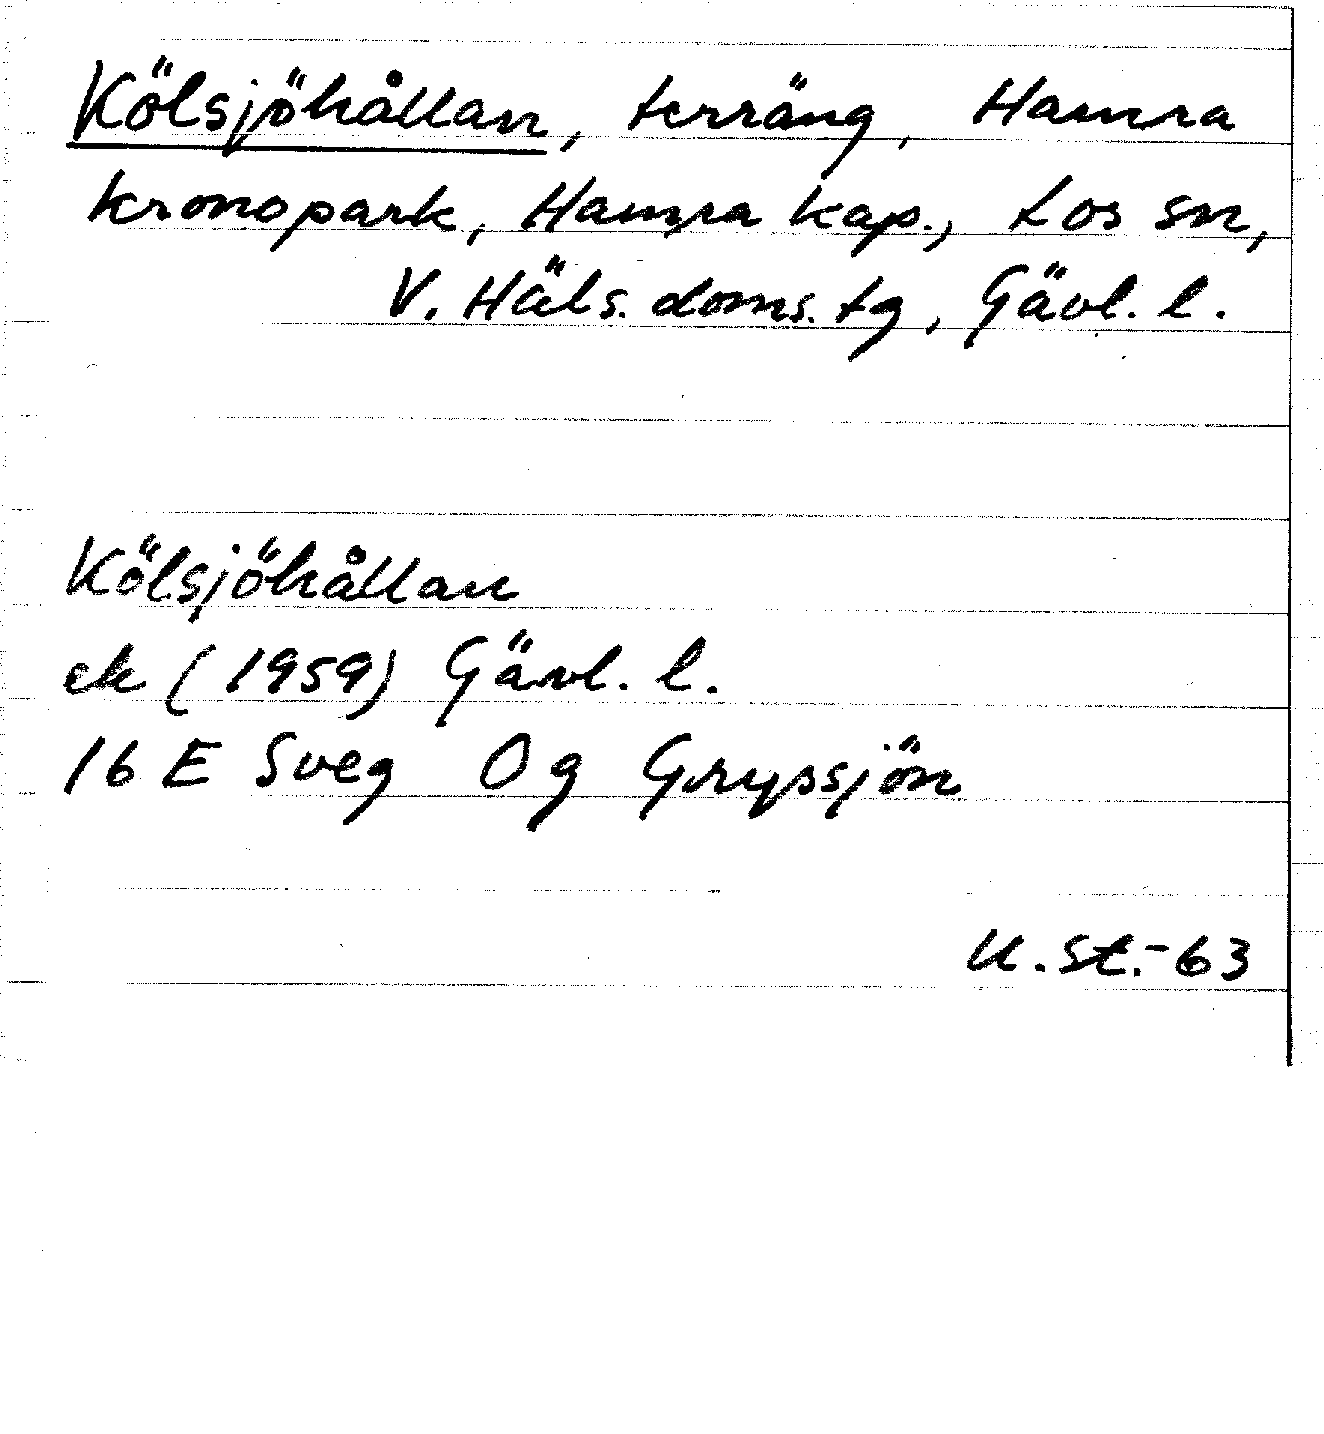 Kölsjöhållan, terräng, Hamra
kronopark, Hamra kap., Los sn,
V. Häls. doms. tg, Gävl. l.
Kölsjöhållan
ek (1959) Gävl. l.
16 E Sveg 0 g Gryssjön
U. St.-63